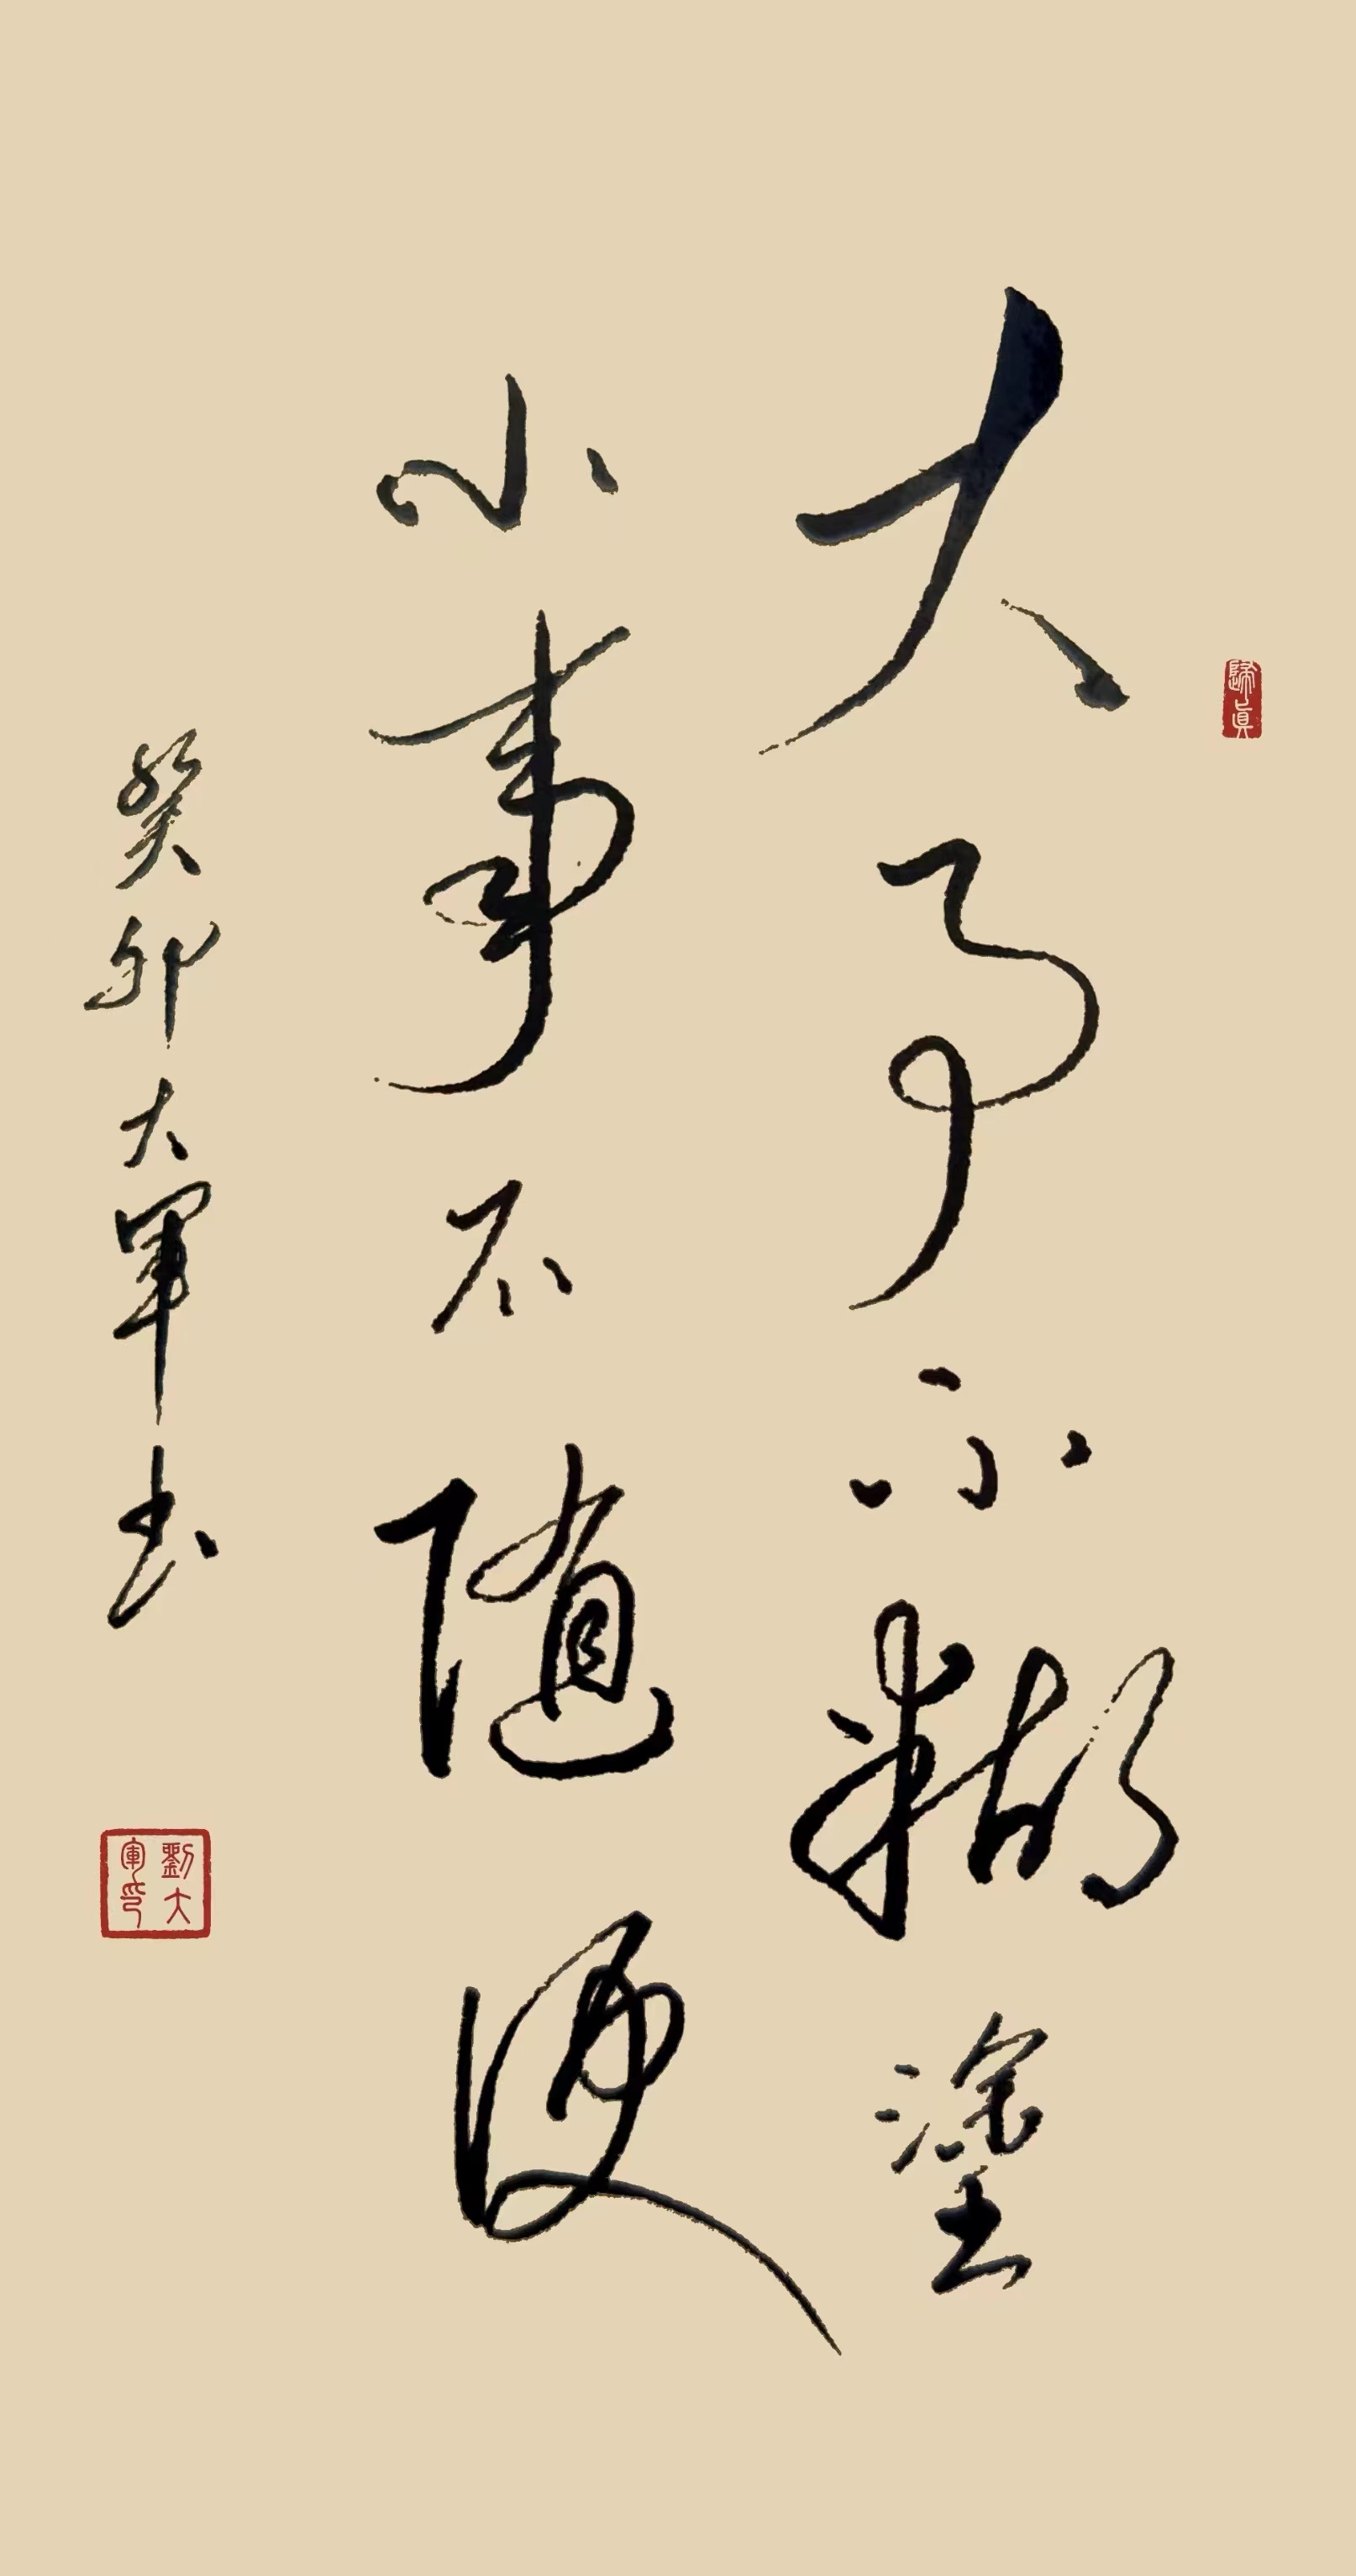 大事不糊塗
小事不随便
癸卯大軍书
歸真
劉大軍印